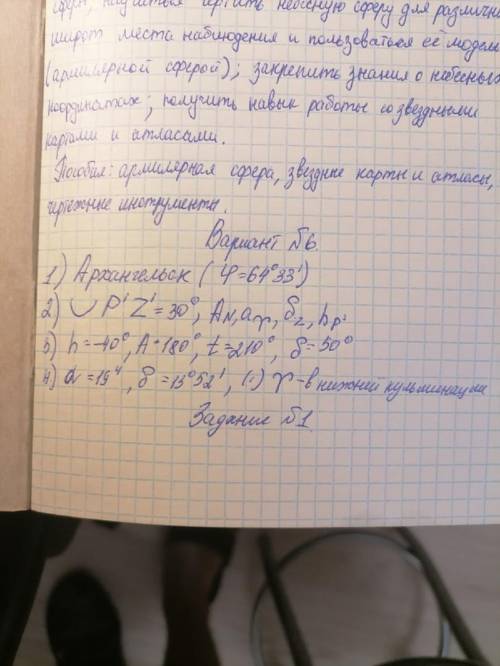 сферы, научиться чертить небесную сферу для различных
широт места наблюдения и пользоваться её моделью
(армилярной сферой); закрепить знания о небесных
координатах; получить навык работы со звездными
картами и атласами.
Пособия: армилярная сфера, звездные карты и атласы,
чертежные инструменты.
Вариант №6.
1) Архангельск (φ=64°33')
2) ∪ P'Z'=30°, A_N, α_γ, δ_z, h_p'
3) h=-40°, A=180°, t=210°, δ=50°
4) α=19ч, δ=13°52', (·) γ-в нижней кульминации
Задание №1